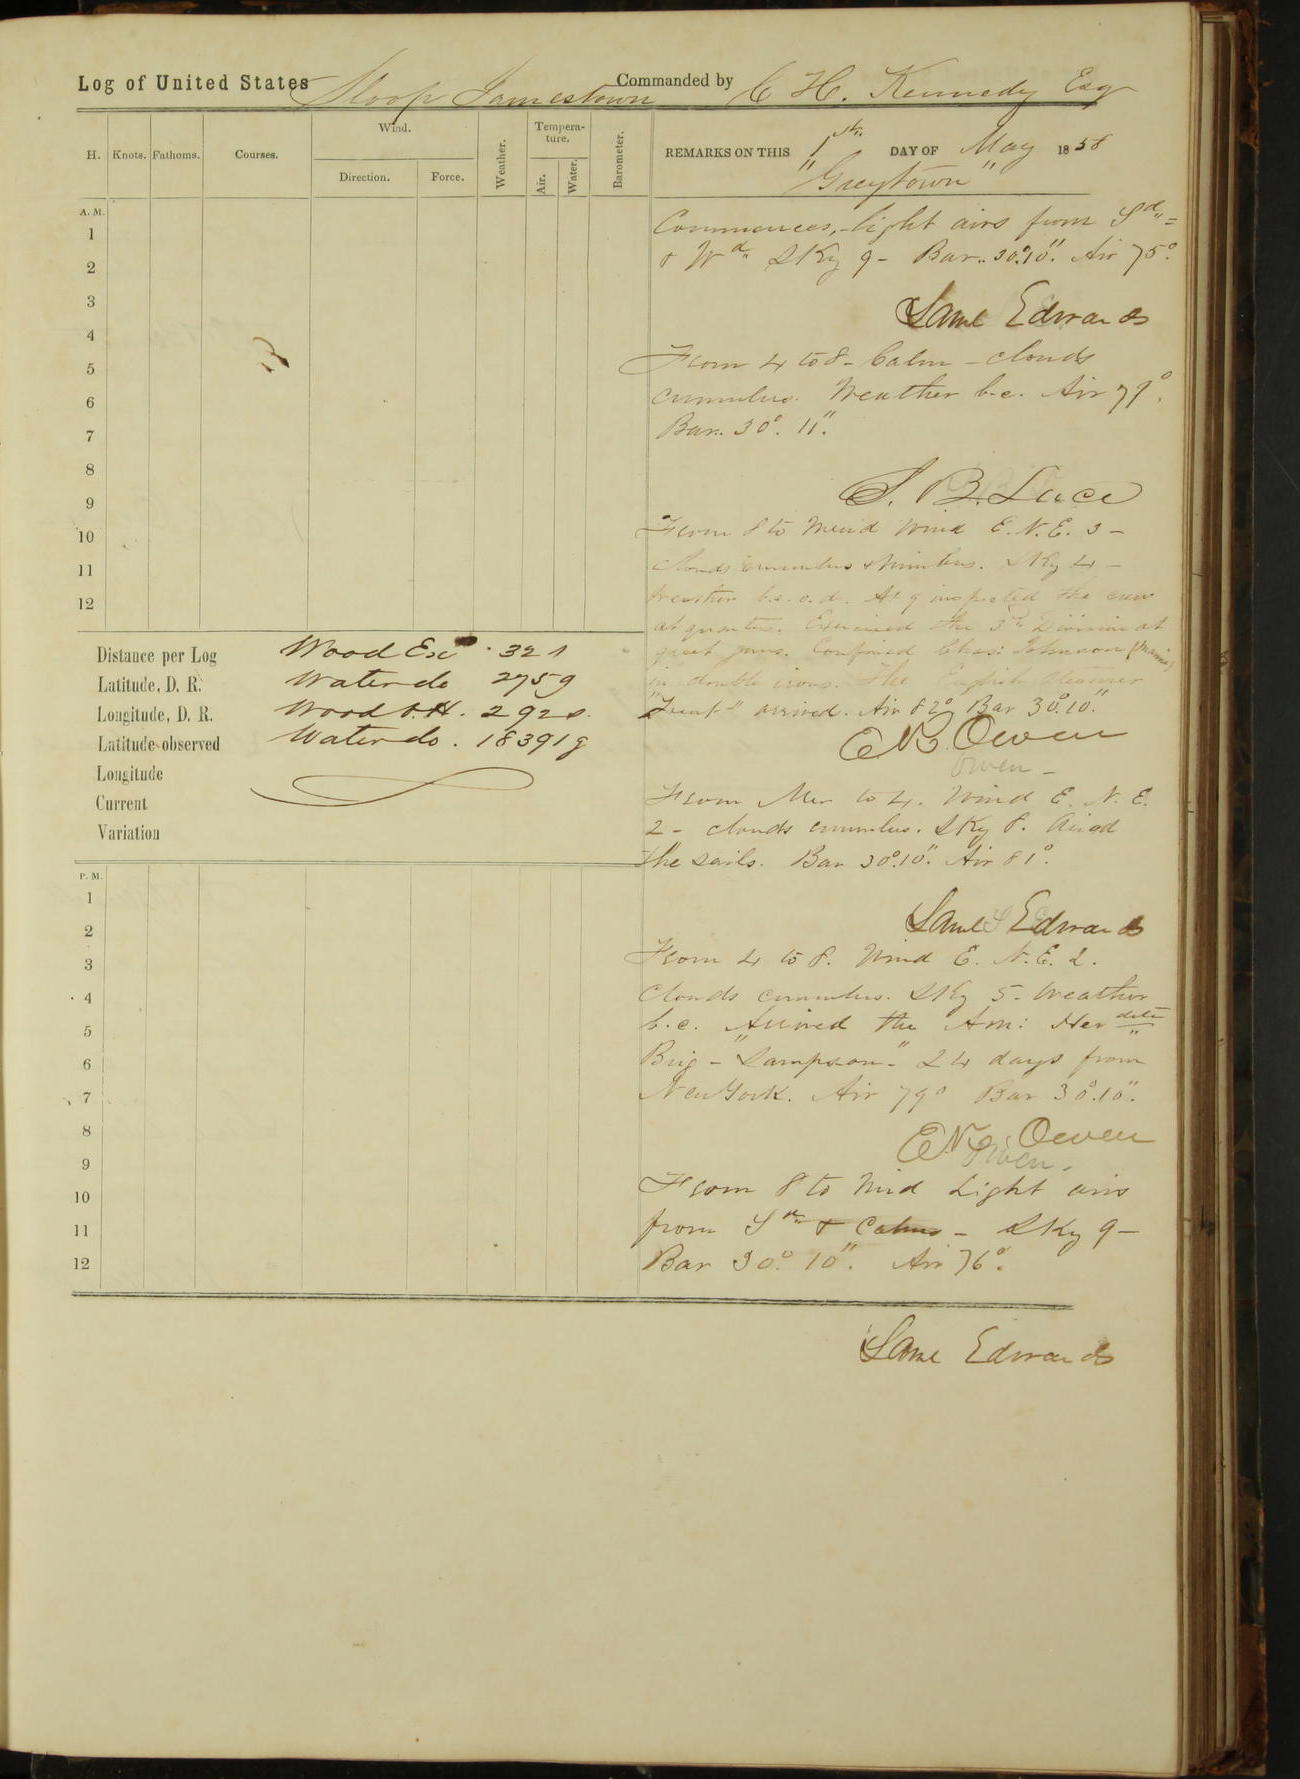 Log of United States Sloop Jamestown Commanded by C H. Kennedy Esq
H. Knots. Fathoms. Courses. Wind. Direction. Force. Weather. Tempera-ture. Air. Water. Barometer.
REMARKS ON THIS 1st. DAY OF May 1858
"Greytown"
A. M.
1
2
3
4
5
6
7
8
9
10
11
12
Commences, light airs from Sd =
& Wd Sky 9 - Bar. 30°.10". Air 75°.
Saml Edwards
From 4 to 8 - Calm - clouds
cumulus. Weather b.c. Air 79°.
Bar. 30°. 11".
S. B. Luce
From 8 to Merid Wind E. N. E. 3 -
clouds cumulus & Nimbus. Sky 4 -
Weather b.c.o.d. At 9 inspected the crew
at quarters. Exercised the 3rd Division at
great guns. Confined Chas: Johnson (Marine)
in double irons. The English Steamer
"Trent" arrived. Air 82° Bar 30°.10".
E K Owen
Owen -
Distance per Log
Latitude, D. R.
Longitude, D. R.
Latitude observed
Longitude
Current
Variation
Wood Exd 321
Water do 2759
Wood O.H. 2920.
Water do. 18391g
From Mer to 4. Wind E. N. E.
2 - clouds cumulus. Sky 8. Aired
the sails. Bar 30°.10". Air 81°.
Saml Edwards
P. M.
1
2
3
4
5
6
7
8
9
10
11
12
From 4 to 8. Wind E. N. E. 2.
Clouds cumulus. Sky 5. Weather
b.c. Arrived the Am: Her dite
Brig - "Sampson" - 24 days from
New York. Air 79° Bar 30°.10".
E K Owen
Owen -
From 8 to Mid Light airs
from Sd & Calms - Sky 9 -
Bar 30°. 10". Air 76°.
Saml Edwards